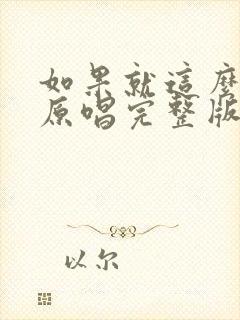 如果就這麼
原唱完整版
以尔